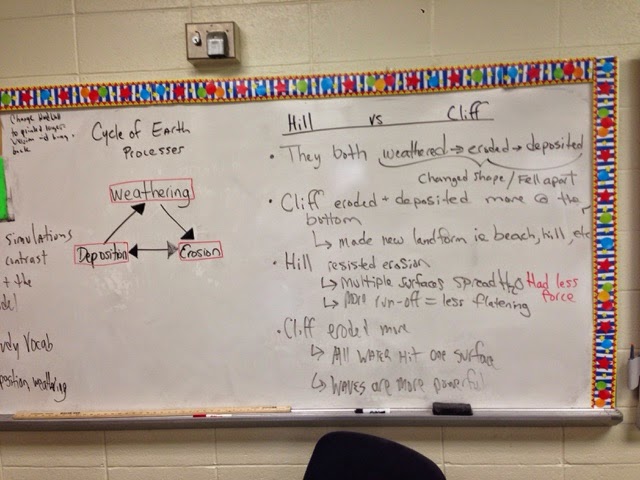 Change
to
Cycle of Earth
Processes
Weathering
Deposition
Erosion
simulations
contrast
+ the
del
udy Vocab
position, weathering
Hill vs Cliff
• They both weathered → eroded → deposited
Changed shape / Fell apart
• Cliff eroded + deposited more @ the
bottom
↳ made new landform ie beach, hill, etc
• Hill resisted erosion
↳ Multiple surfaces spread H2O Had less
force
↳ More run-off = less flatening
• Cliff eroded more
↳ All water hit one surface
↳ Waves are more powerful